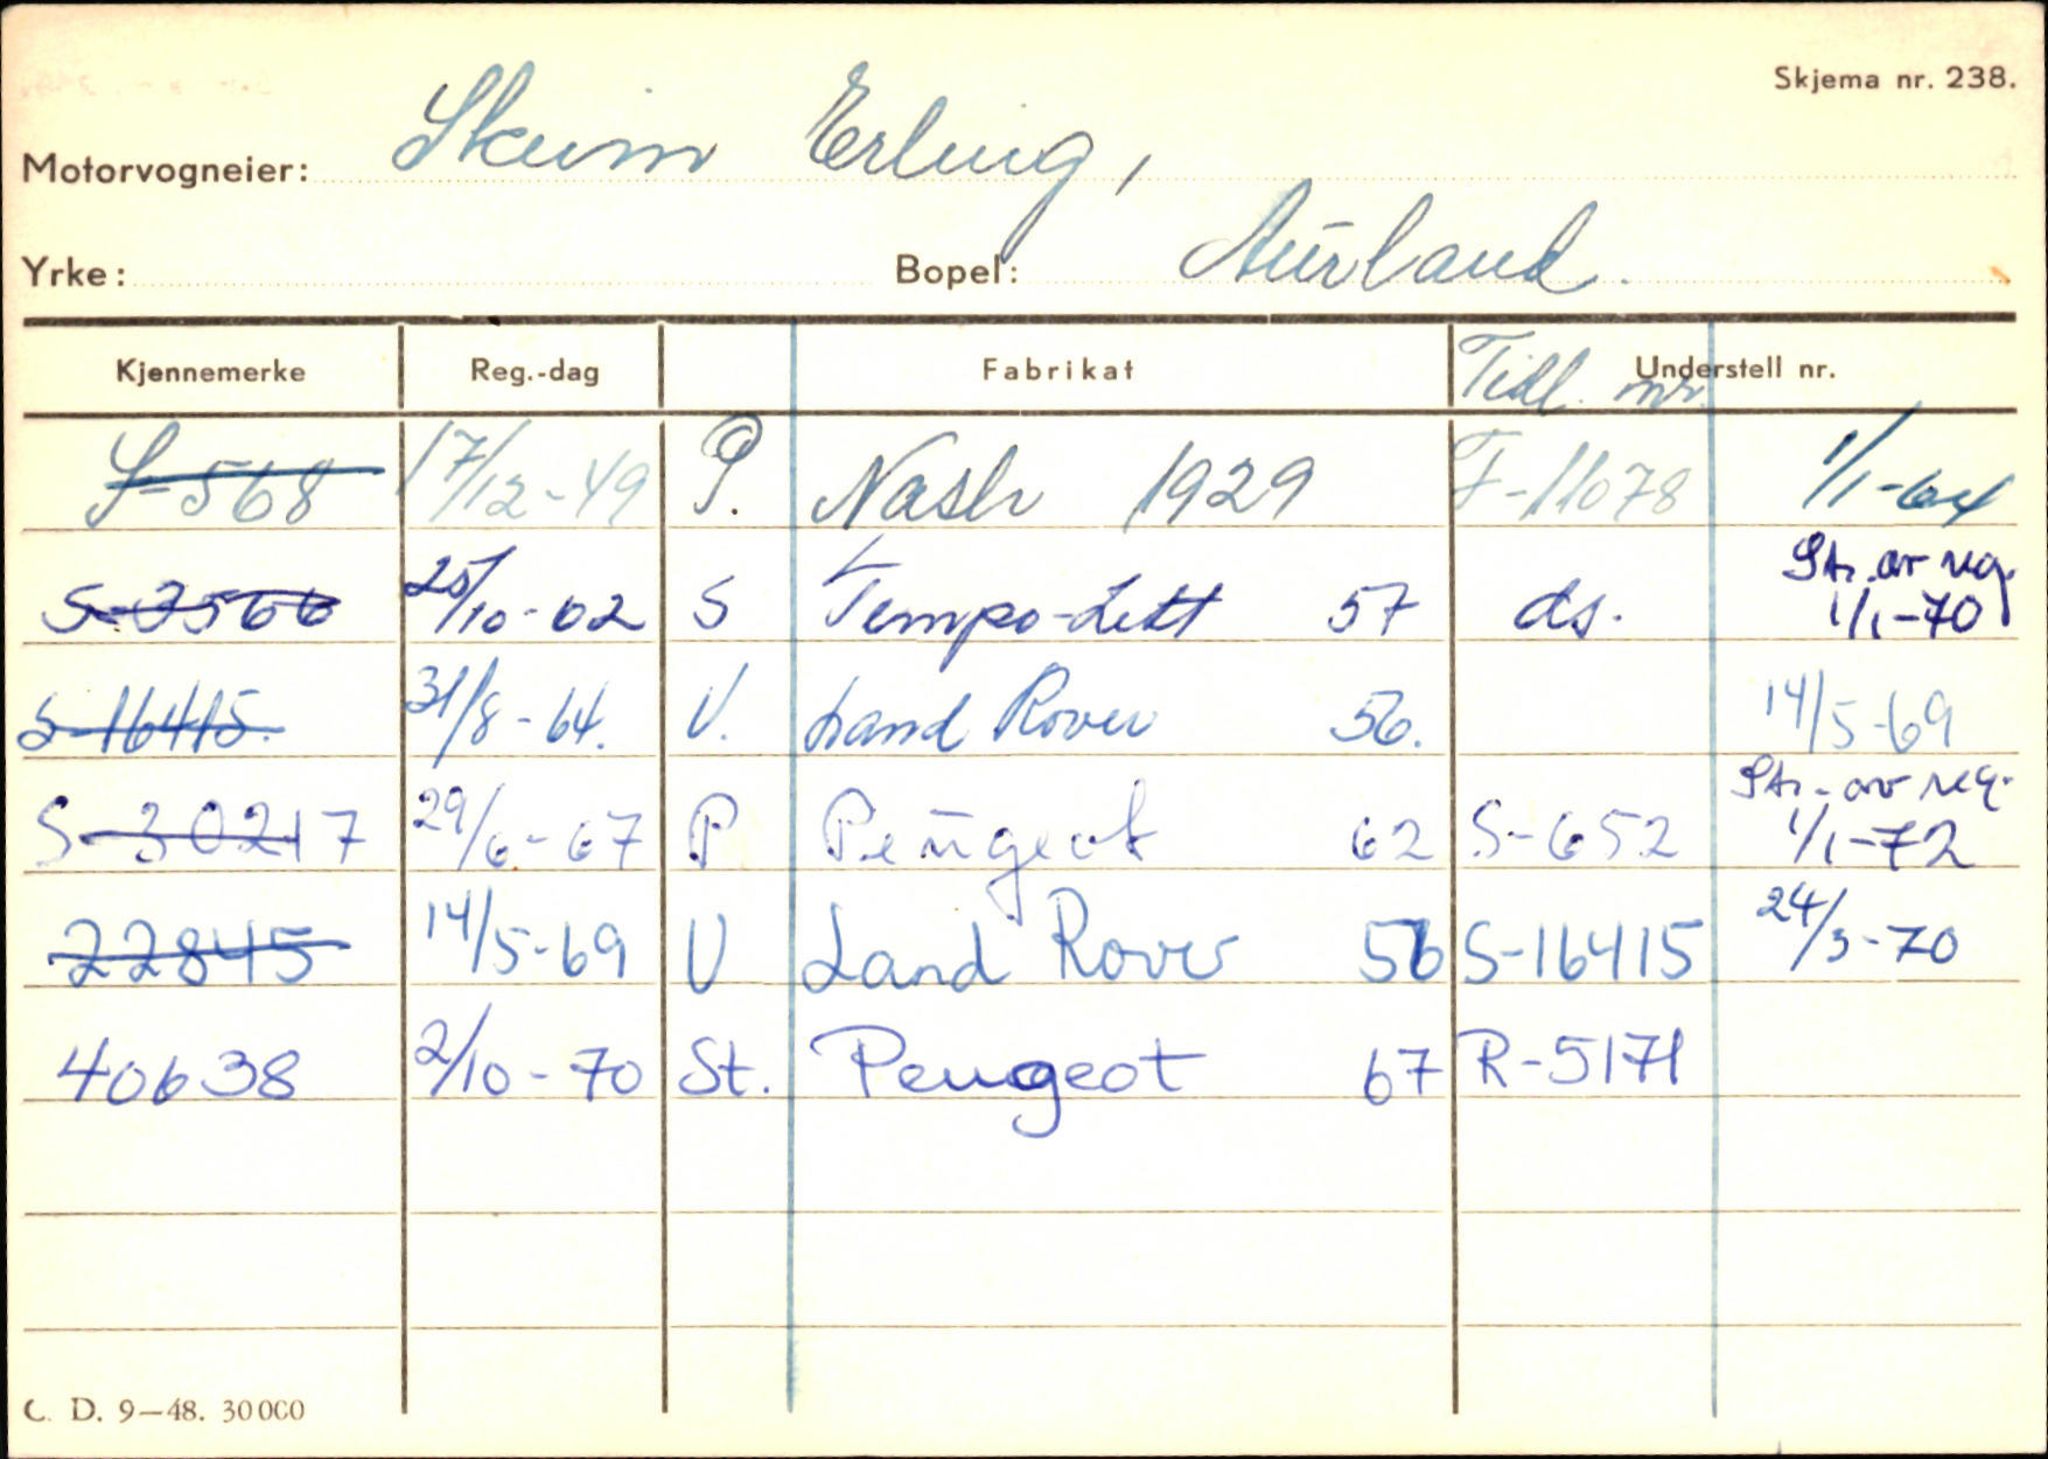 Skjema nr. 238.
Motorvogneier: Skeim Erling,
Yrke: Bopel: Aurland.
Kjennemerke Reg.-dag Fabrikat Tidl. nr. Understell nr.
S-568 17/12-49 P. Nash 1929 F-11078 1/1-64
Str. av reg.
S-3566 25/10-62 S Tempo-Lett 57 ds. 1/1-70
S-16415. 31/8-64. V. Land Rover 56. 14/5-69
Str. av reg.
S-30217 29/6-67 P Peugeot 62 S-652 1/1-72
22845 14/5-69 V Land Rover 56 S-16415 24/3-70
40638 2/10-70 St. Peugeot 67 R-5171
C. D. 9—48. 30000